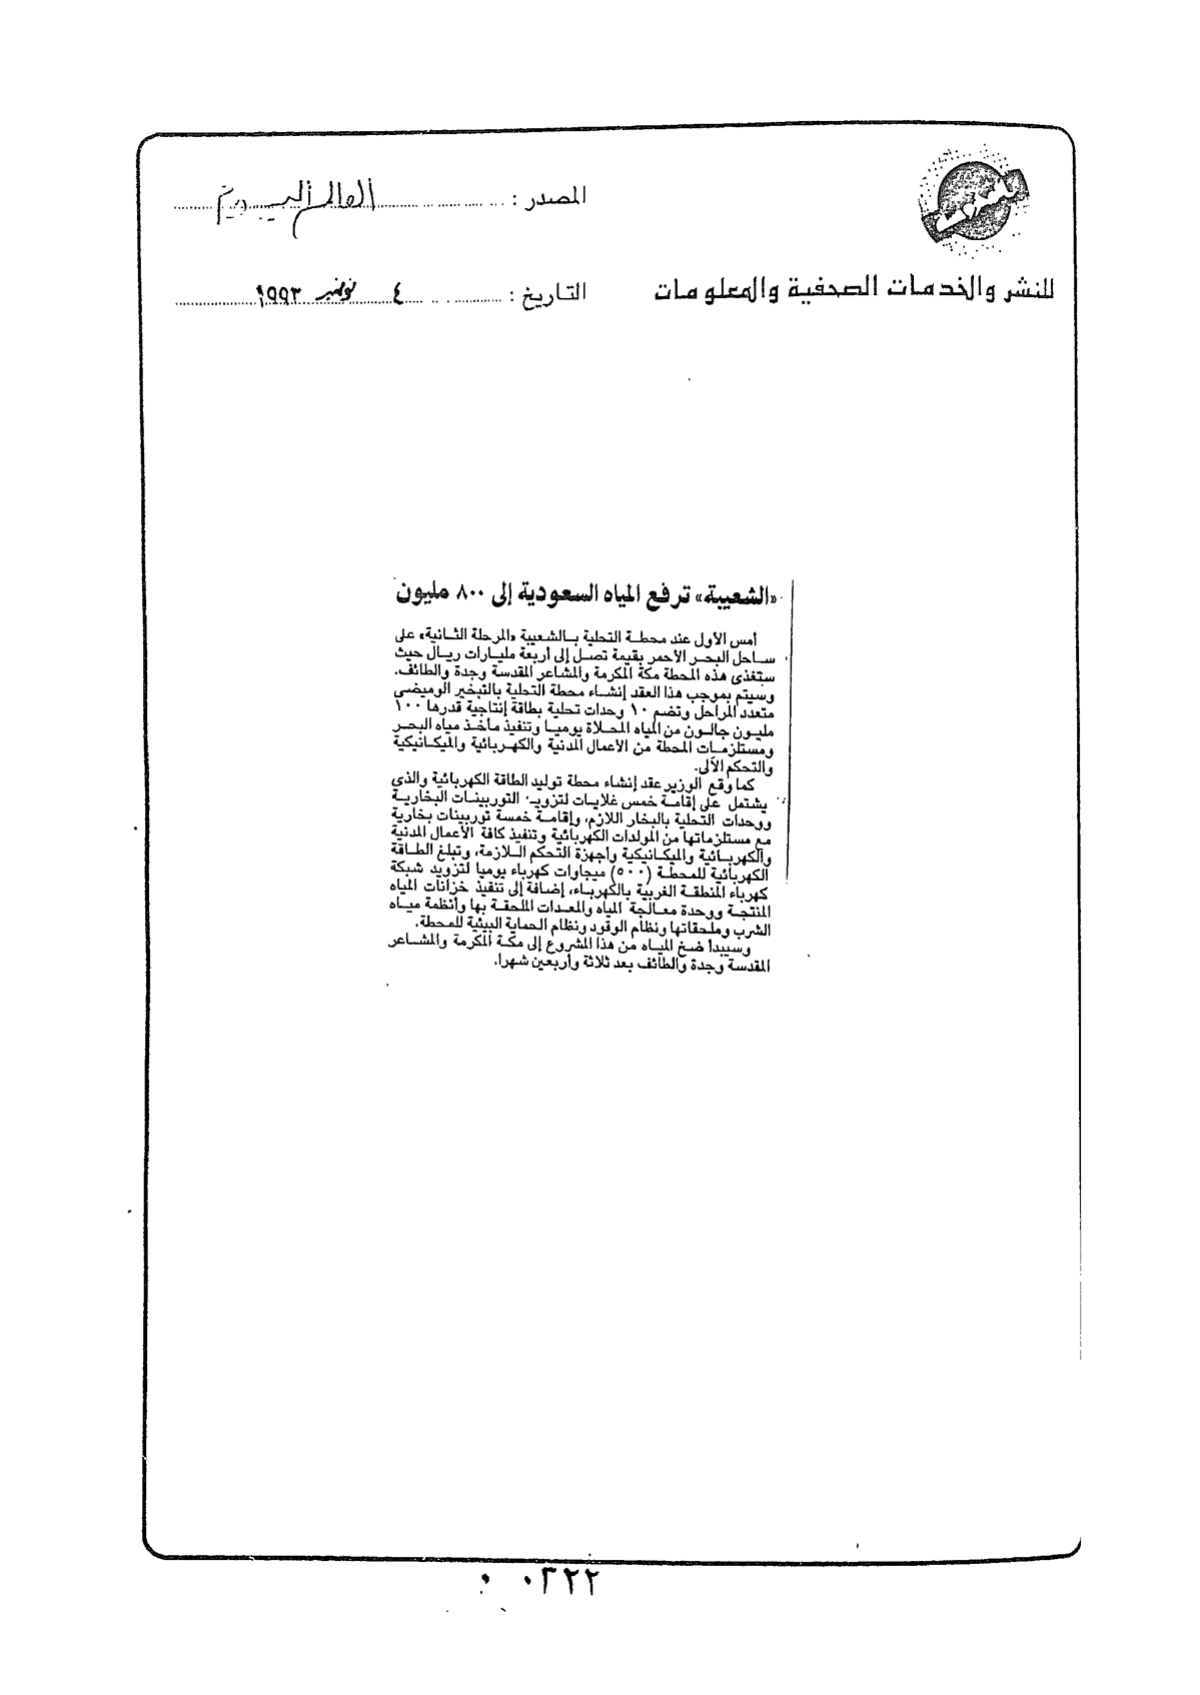 المصدر : العالم اليوم
للنشر والخدمات الصحفية والمعلومات
التاريخ : ٤ نوفمبر ١٩٩٣
«الشعيبة» ترفع المياه السعودية إلى ٨٠٠ مليون
أمس الأول عند محطة التحلية بالشعيبة «المرحلة الثانية» على
ساحل البحر الأحمر بقيمة تصل إلى أربعة مليارات ريال حيث
ستغذى هذه المحطة مكة المكرمة والمشاعر المقدسة وجدة والطائف.
وسيتم بموجب هذا العقد إنشاء محطة التحلية بالتبخير الوميضى
متعدد المراحل وتضم ١٠ وحدات تحلية بطاقة إنتاجية قدرها ١٠٠
مليون جالون من المياه المحلاة يوميا وتنفيذ مآخذ مياه البحر
ومستلزمات المحطة من الأعمال المدنية والكهربائية والميكانيكية
والتحكم الآلى.
كما وقع الوزير عقد إنشاء محطة توليد الطاقة الكهربائية والذى
يشتمل على إقامة خمس غلايات لتزويد التوربينات البخارية
ووحدات التحلية بالبخار اللازم، وإقامة خمسة توربينات بخارية
مع مستلزماتها من المولدات الكهربائية وتنفيذ كافة الأعمال المدنية
والكهربائية والميكانيكية وأجهزة التحكم اللازمة، وتبلغ الطاقة
الكهربائية للمحطة (٥٠٠) ميجاوات كهرباء يوميا لتزويد شبكة
كهرباء المنطقة الغربية بالكهرباء، إضافة إلى تنفيذ خزانات المياه
المنتجة ووحدة معالجة المياه والمعدات الملحقة بها وأنظمة مياه
الشرب وملحقاتها ونظام الوقود ونظام الحماية البيئية للمحطة.
وسيبدأ ضخ المياه من هذا المشروع إلى مكة المكرمة والمشاعر
المقدسة وجدة والطائف بعد ثلاثة وأربعين شهرا.